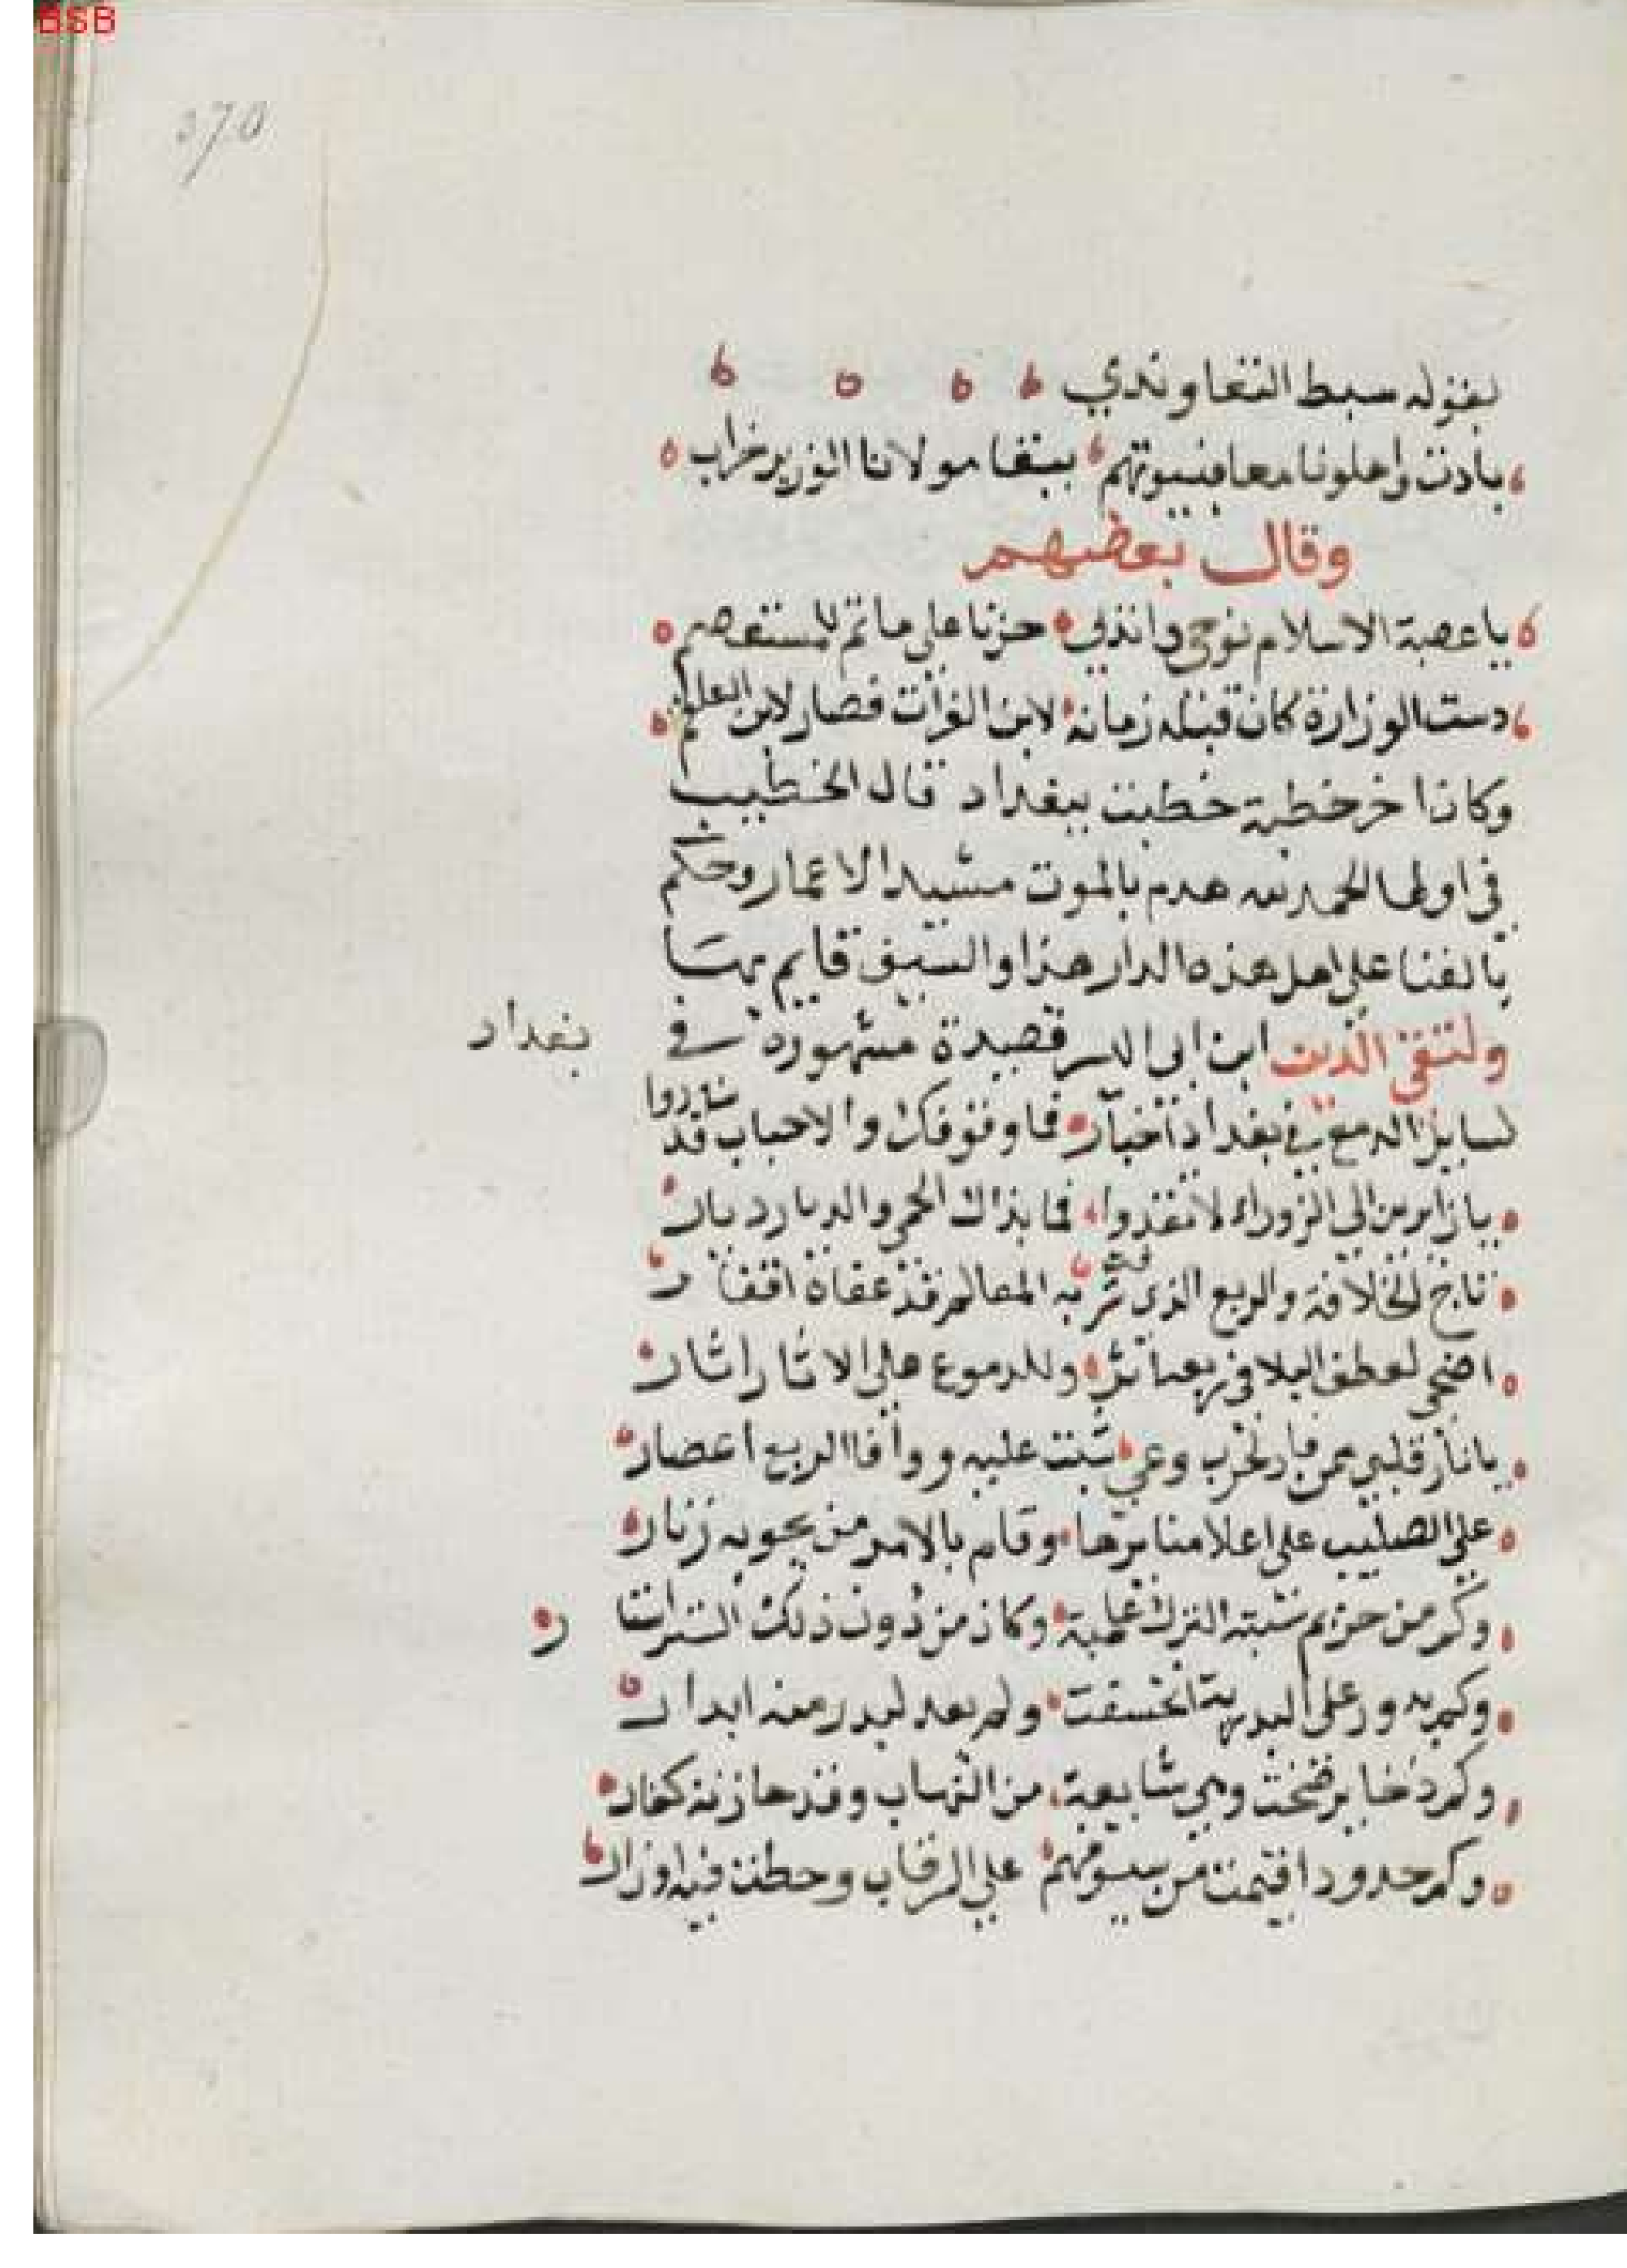 BSB
370
بقوله سبط التعاويذي
بادت واهلونا معا فبيوتهم ببقا مولانا الوزير خراب
وقال بعضهم
يا عصبة الاسلام نوحي واندبي حزنا على ما تم للمستعصم
دست الوزارة كان قبله زمانه لابن الفرات فصار لابن العلقمي
وكان اخر خطبة خطبت ببغداد قال الخطيب
في اولها الحمد لله هدم بالموت مشيد الاعمار وحكم
بالفنا على اهل هذه الدار هذا والسيف قايم بها
ولتقي الدين ابن ابي اليسر قصيدة مشهورة في بغداد
لسايل الدمع في بغداد اخبار فما وقوفك والاحباب قد ساروا
يا زايرين الى الزوراء لا تفدوا فما بذاك الحمى والديار ديار
تاج الخلافة والربع الذي شرفت به المعالم قد عفاه اقفار
اضحى لعطف البلا في ربعه اثر وللدموع على الاثار اثار
يا نار قلبي من نار لحرب وعى شبت عليه ووافا الربع اعصار
على الصليب على اعلا منابرها وقام بالامر من يحويه زنار
وكم من حريم سبته الترك غاصبة وكان من دون ذلك الستر استار
وكم بدور على البدرية انخسفت ولم يعد لبدر منه ابدار
وكم ذخاير اضحت وهي شايعة من النهاب وقد حازته كفار
وكم حدود اقيمت من سيوفهم على الرقاب وحطت فيه اوزار